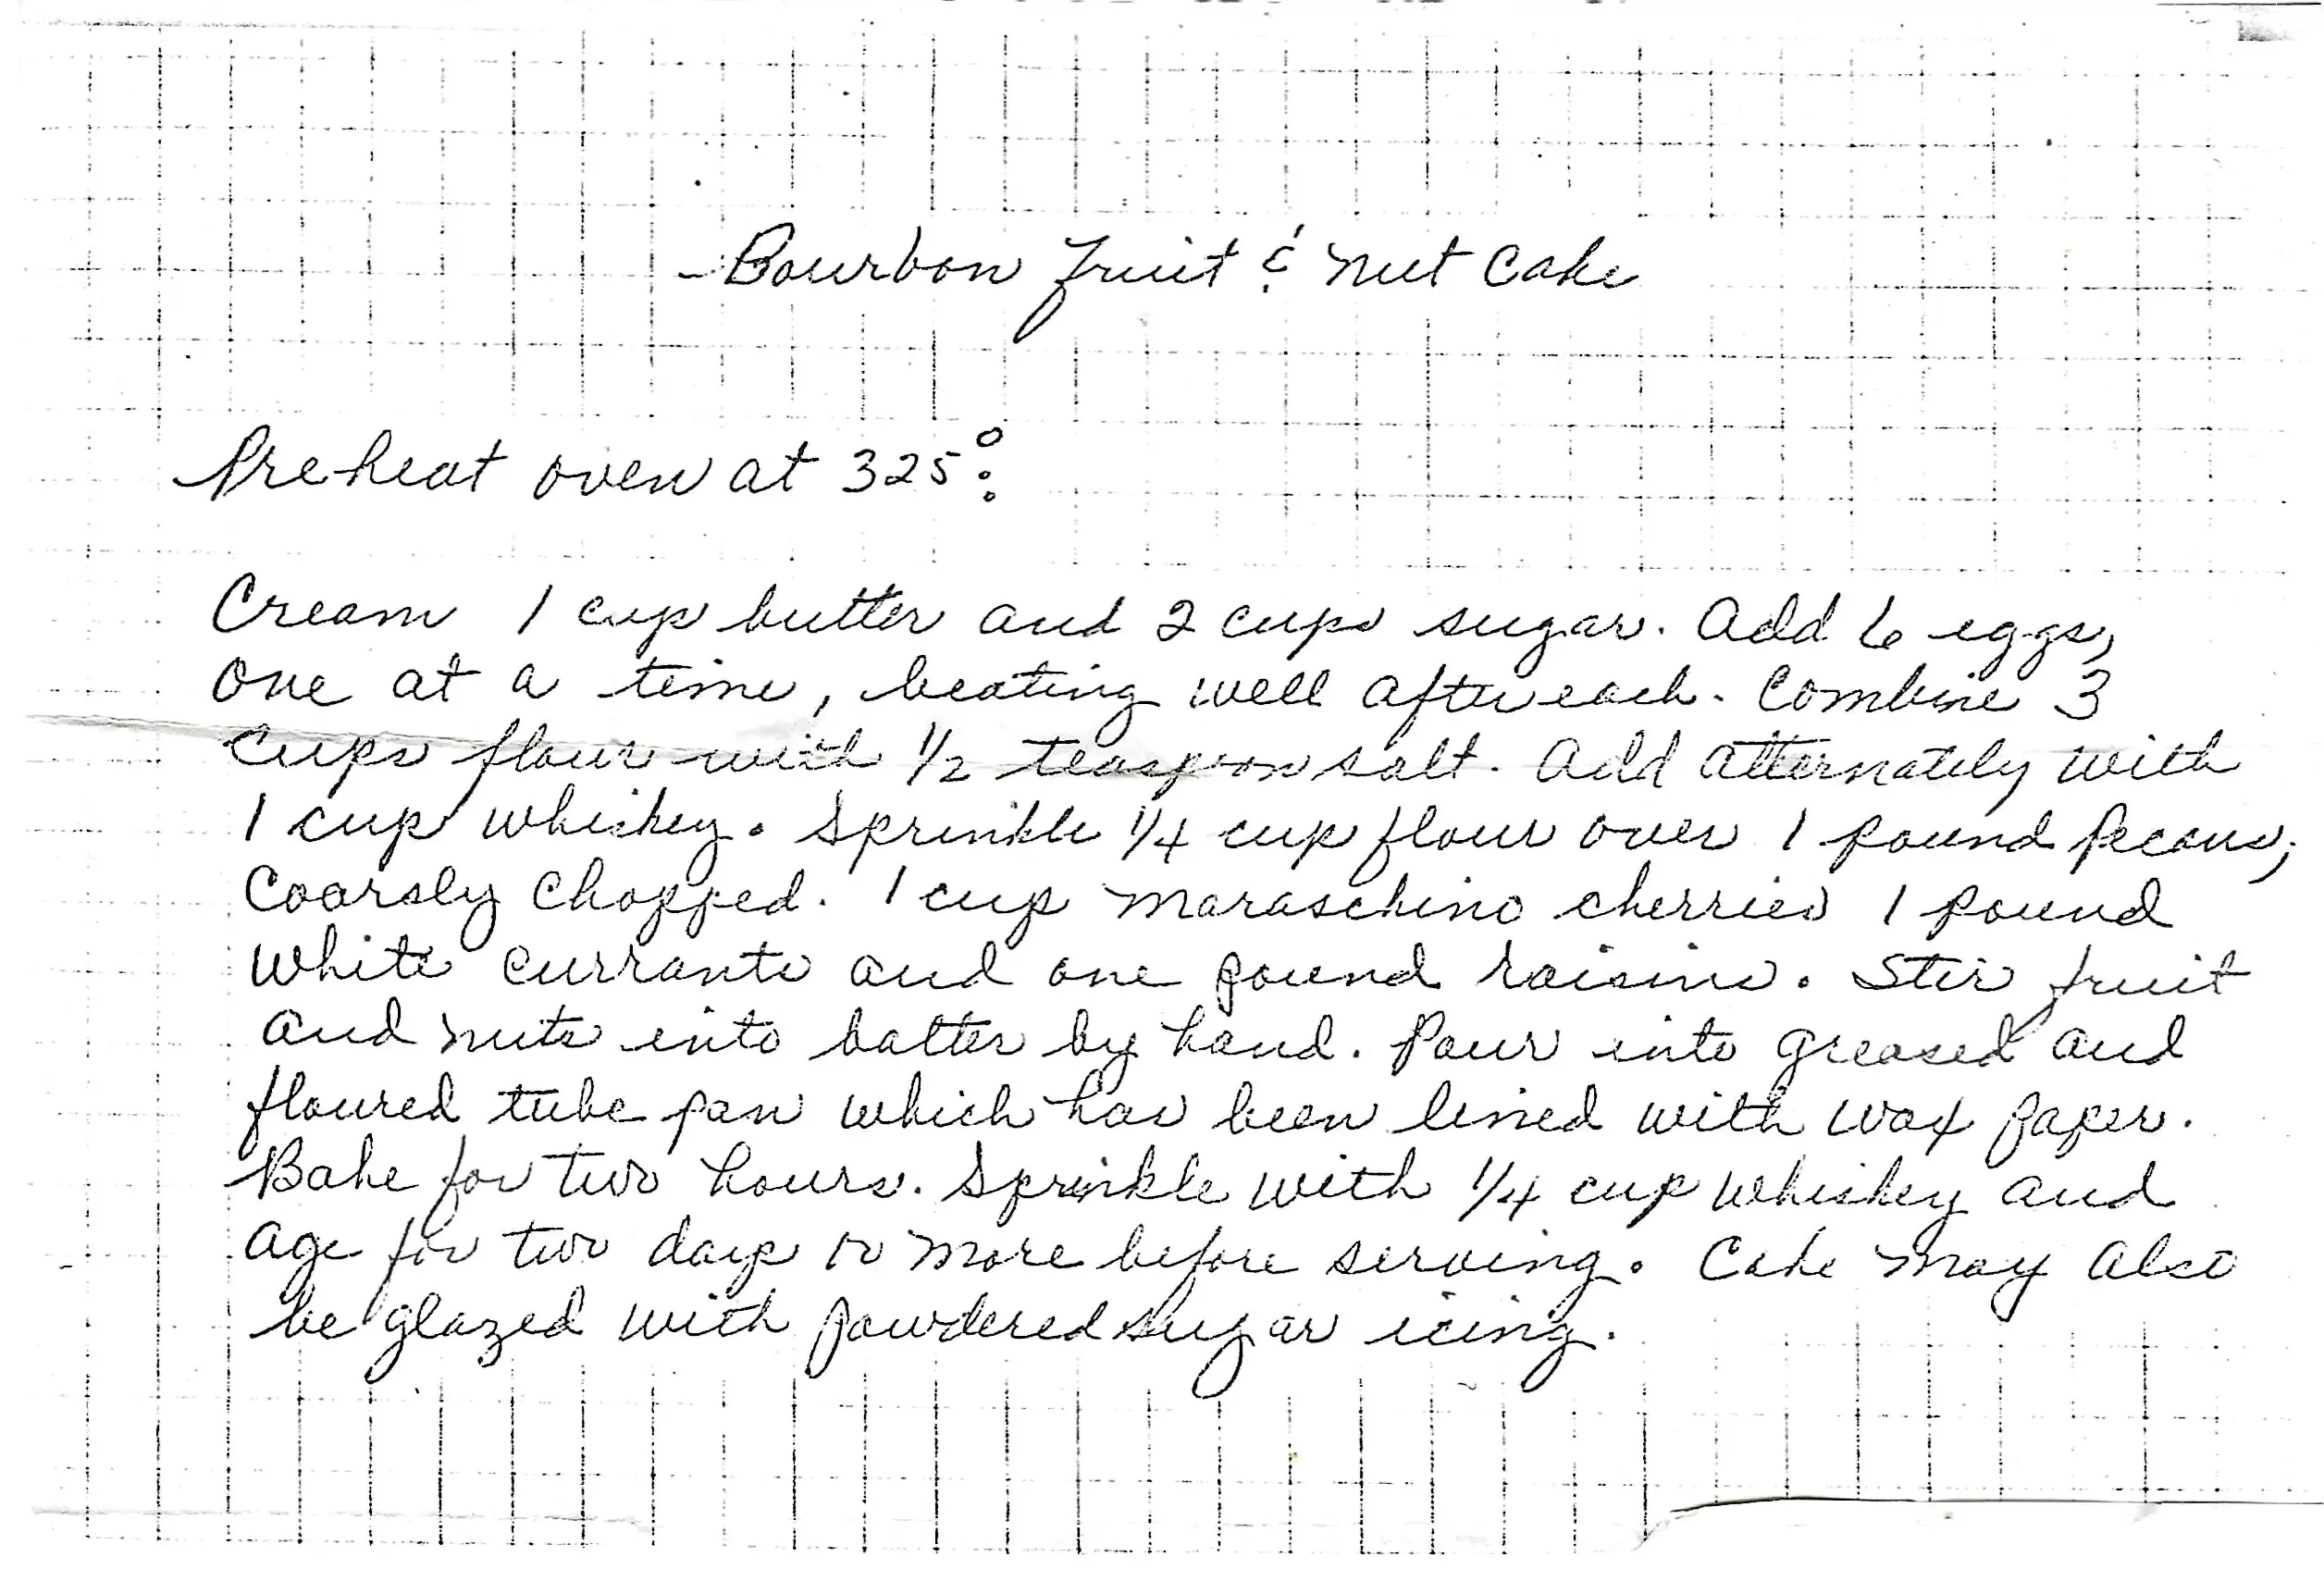 Bourbon Fruit & Nut Cake
Preheat oven at 325°:
Cream 1 cup butter and 2 cups sugar. Add 6 eggs,
one at a time, beating well after each. Combine 3
cups flour with 1/2 teaspoon salt. Add alternately with
1 cup whiskey. Sprinkle 1/4 cup flour over 1 pound pecans,
Coarsly chopped. 1 cup maraschino cherries 1 pound
white currants and one pound raisins. Stir fruit
and nuts into batter by hand. Pour into greased and
floured tube pan which has been lined with wax paper.
Bake for two hours. Sprinkle with 1/4 cup whiskey and
age for two days or more before serving. Cake may also
be glazed with powdered sugar icing.